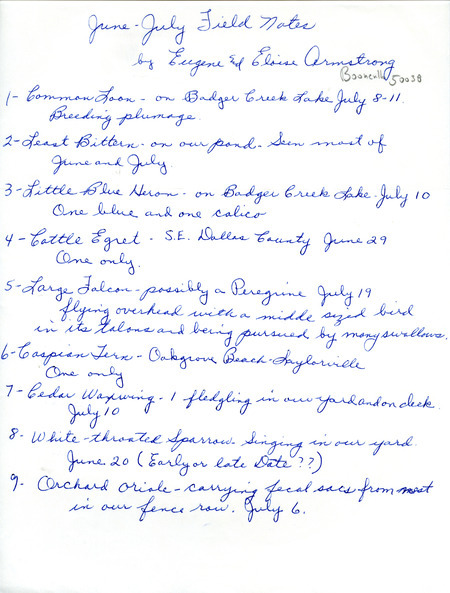 June-July Field Notes
by Eugene & Eloise Armstrong
Booneville 50038
1- Common Loon - on Badger Creek Lake July 8-11.
Breeding plumage.
2- Least Bittern - on our pond. Seen most of
June and July.
3- Little Blue Heron - on Badger Creek Lake. July 10
One blue and one calico
4- Cattle Egret - S.E. Dallas County June 29
One only.
5- Large Falcon - possibly a Peregrine July 19
flying overhead with a middle sized bird
in its talons and being pursued by many swallows.
6- Caspian Tern - Oakgrove Beach - Saylorville
One only
7- Cedar Waxwing - 1 fledgling in our yard and on deck.
July 10
8- White-throated Sparrow - Singing in our yard.
June 20 (Early or late Date??)
9- Orchard Oriole - carrying fecal sacs from nest
in our fence row. July 6.